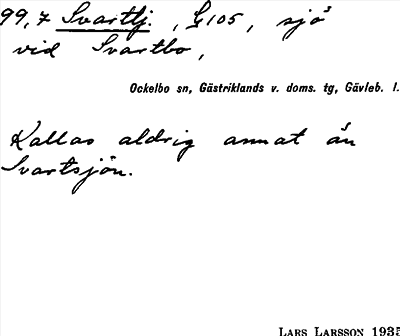 99,7 Svartlj. , G105, sjö
vid Svartbo,
Ockelbo sn, Gästriklands v. doms. tg, Gävleb. l.
Kallas aldrig annat än
Svartsjön.
LARS LARSSON 1935